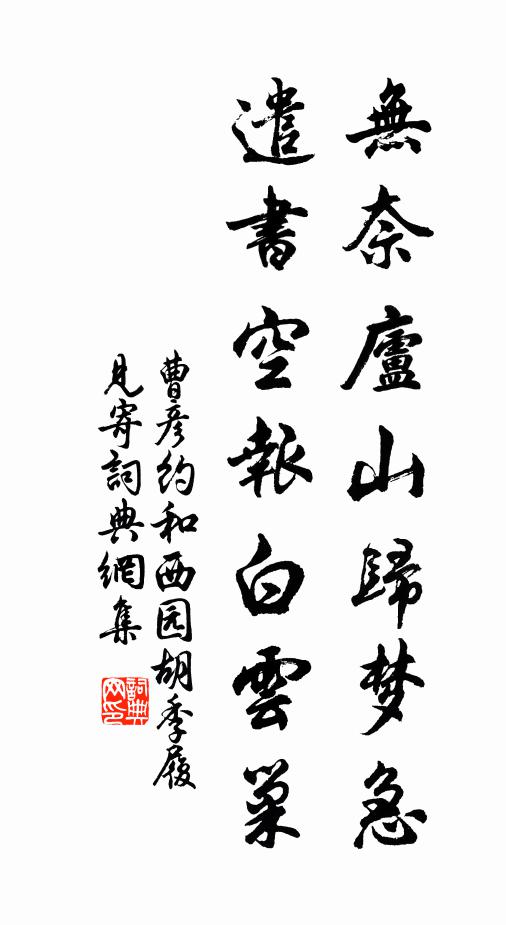 無奈廬山歸梦急
遣書空報白雲巢
曹彦約和西园胡季履
見寄詞典網集
詞典网印